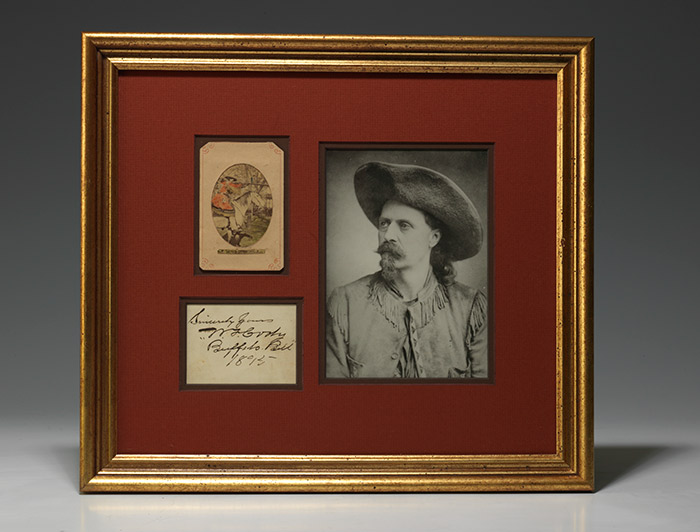 Sincerely Yours
"W F Cody
Buffalo Bill"
1895